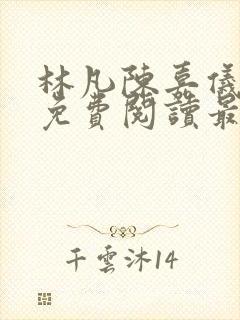 林凡陳嘉儀
免費閱讀最
千雲沐14